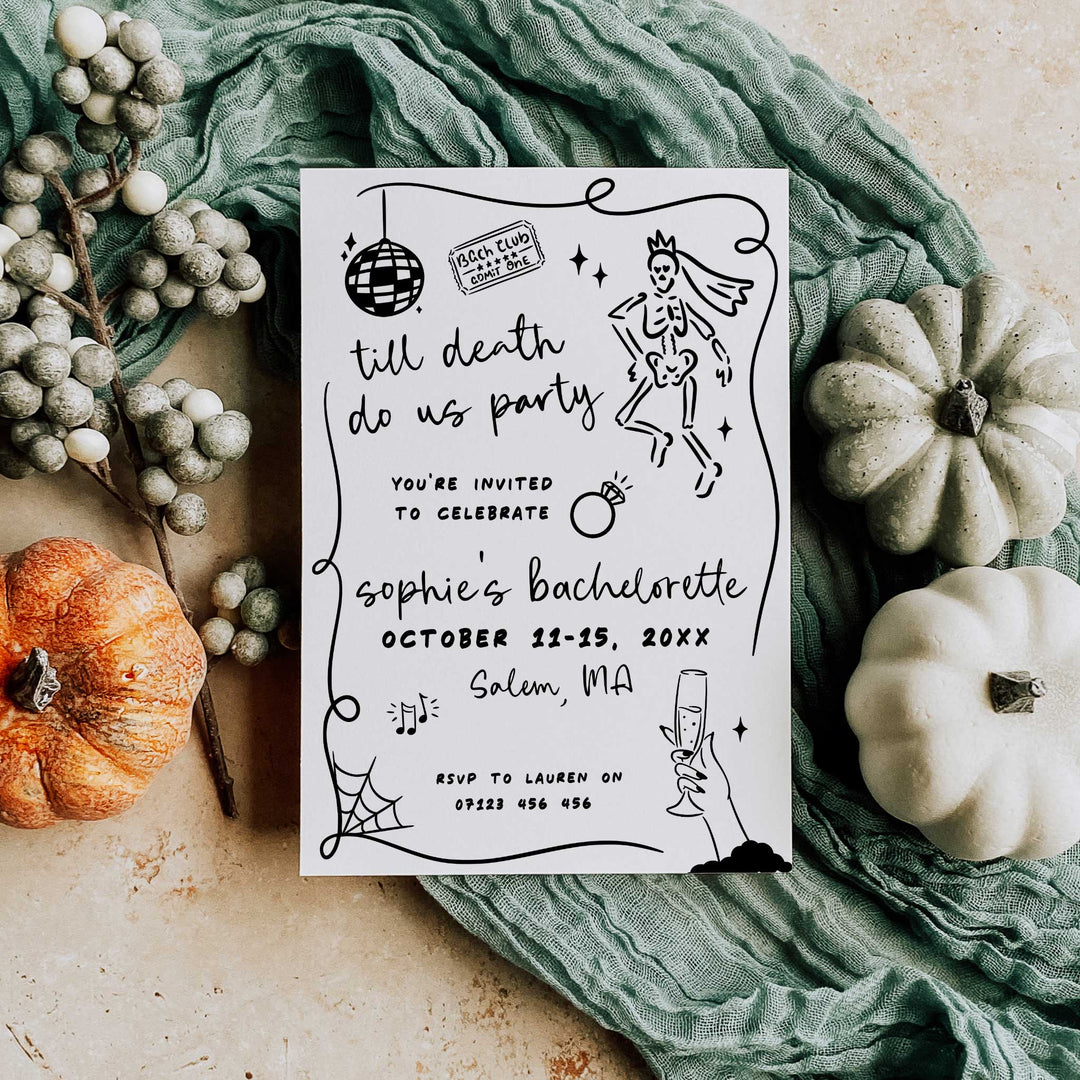 Bach Club
ADMIT ONE
till death
do us party
YOU'RE INVITED
TO CELEBRATE
sophie's bachelorette
OCTOBER 11-15, 20XX
Salem, MA
RSVP TO LAUREN ON
07123 456 456